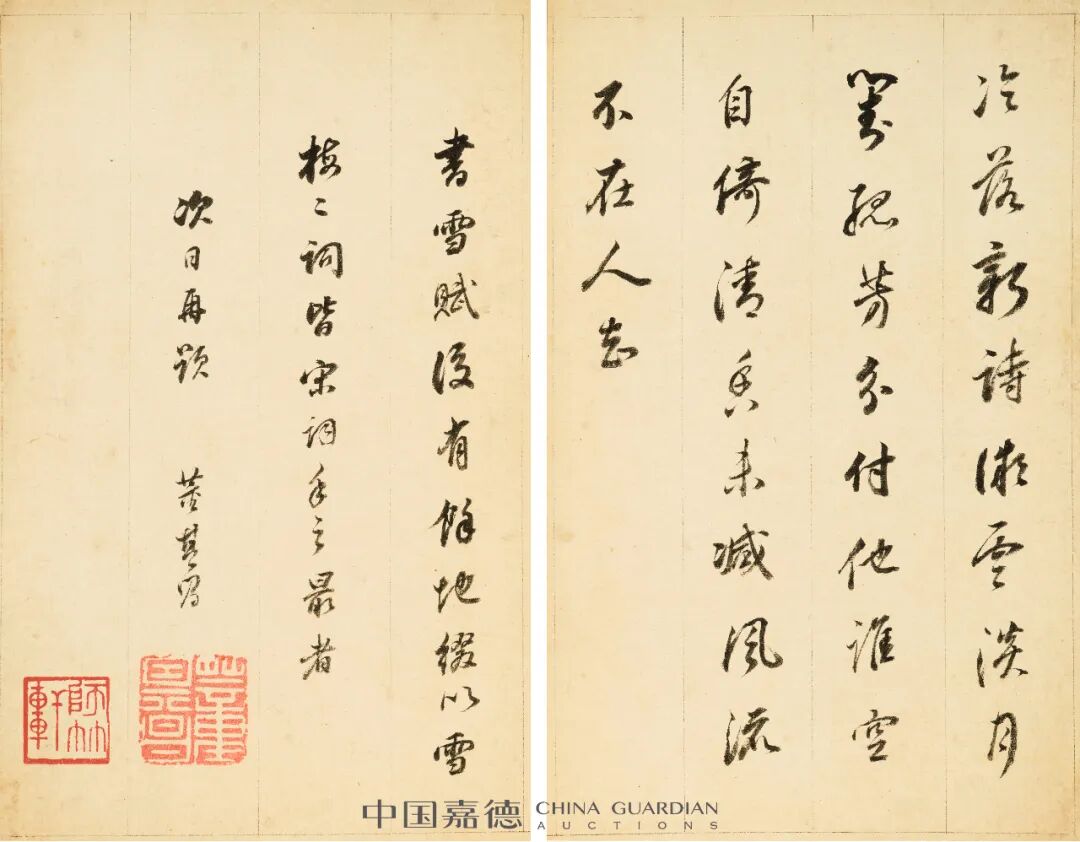 冷落新詩微雲淡月
對孤芳分付他誰空
自倚清香未減風流
不在人知
書雪賦後有餘地綴以雪
梅二詞皆宋詞手之最者
次日再題 董其昌
中国嘉德 CHINA GUARDIAN
AUCTIONS